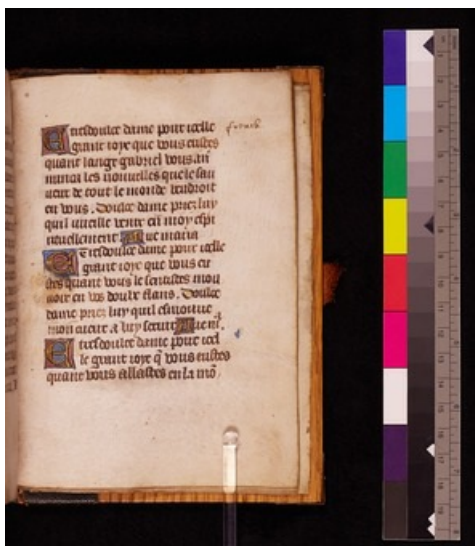 E tresdoulce dame pour icelle
grant ioye que vous eustes
quant lange gabriel vous an
nunca les nouuelles que le sau
ueur de tout le monde vendroit
en vous. Doulce dame priez luy
quil vueille venir en moy espi
rituellement Aue maria
E tresdoulce dame pour icelle
grant ioye que vous eu
stes quant vous le sentistes mou
uoir en vos doulx flans. Doulce
dame priez luy quil esmouue
mon cueur a luy seruir Aue m.
E tresdoulce dame pour icel
le grant ioye q̄ vous eustes
quant vous allastes en la mō